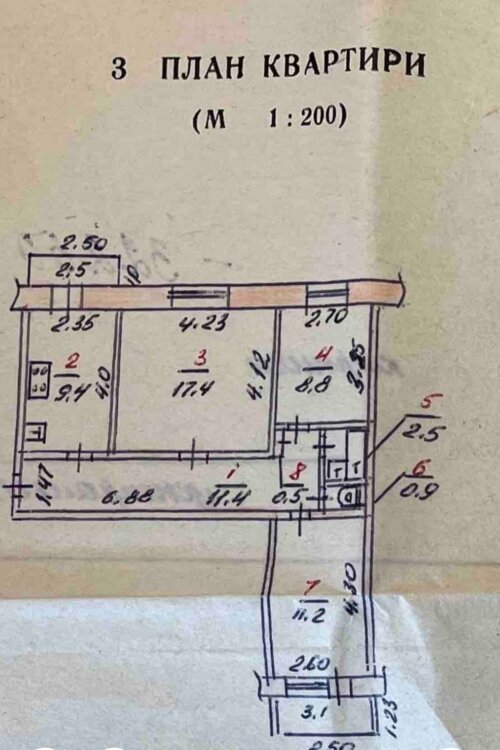 3 ПЛАН КВАРТИРИ
(М 1:200)
2.50
2.5
2.35
4.23
2.70
2
9.4
4.0
3
17.4
4.12
4
8.8
3.25
5
2.5
6
0.9
1.47
6.88
1
11.4
8
0.5
Т
Т
Т
7
11.2
4.30
2.60
3.1
1.23
2.50